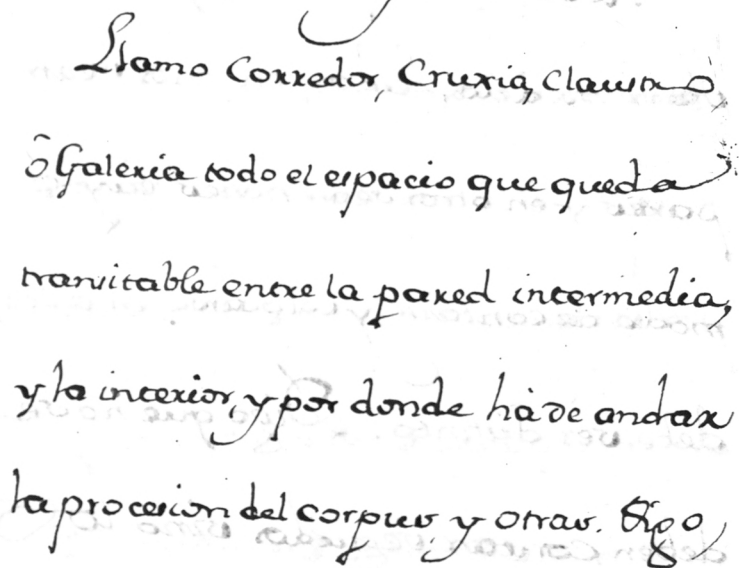 Llamo Corredor, Cruxia, Claustro
ô Galeria todo el espacio que queda
transitable entre la pared intermedia,
y la interior, y por donde hà de andar
la procesion del corpus y otras. Digo,